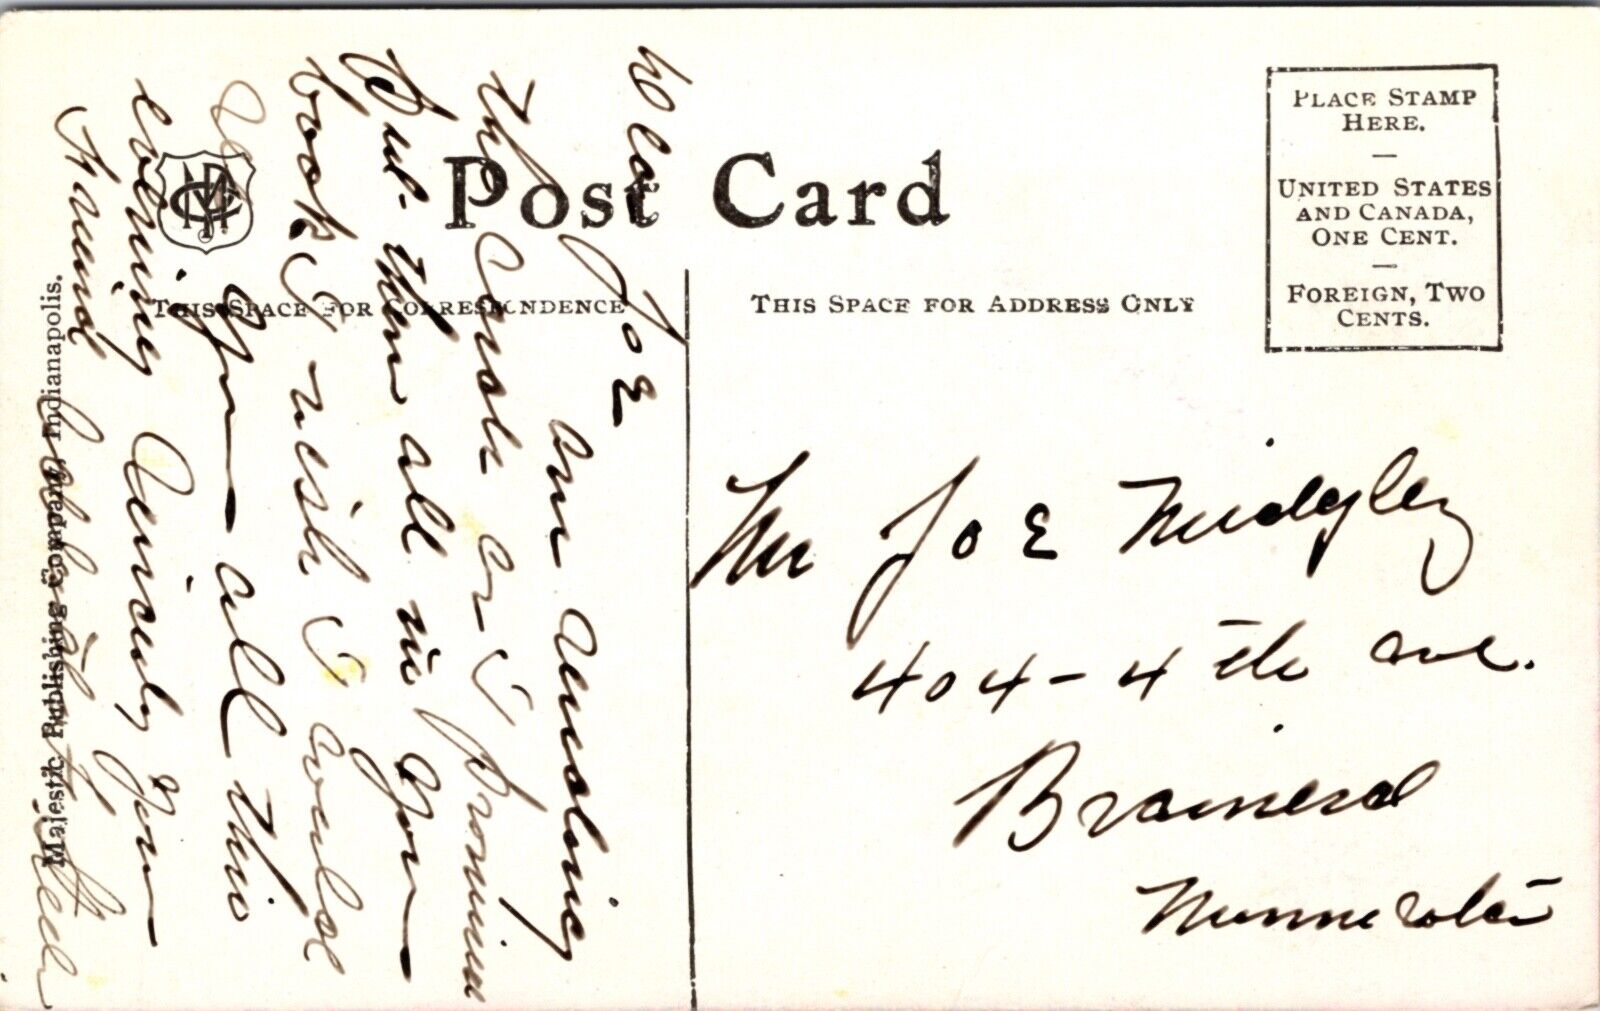 Post Card
THIS SPACE FOR CORRESPONDENCE
THIS SPACE FOR ADDRESS ONLY
PLACE STAMP
HERE.
—
UNITED STATES
AND CANADA,
ONE CENT.
—
FOREIGN, TWO
CENTS.
Majestic Publishing Company, Indianapolis.
Joe
am sending
the cards
Put them all in your
book I wish I could
see you all this
evening your
Friend
Mr Joe Midgley
404-4th ave.
Brainerd
Minnesota